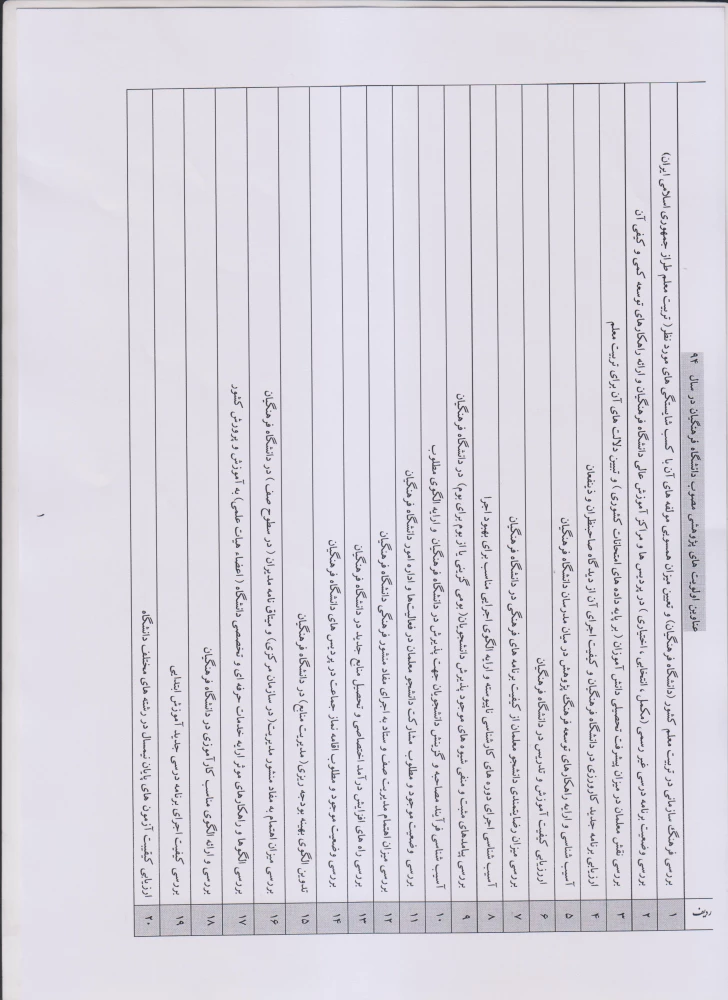 عناوین اولویت های پژوهشی مصوب دانشگاه فرهنگیان در سال ۹۴
ردیف
۱ بررسی فرهنگ سازمانی در تربیت معلم کشور (دانشگاه فرهنگیان) و تعیین میزان همسویی مولفه های آن با کسب شایستگی های مورد نظر( تربیت معلم طراز جمهوری اسلامی ایران)
۲ بررسی وضعیت برنامه درسی غیر رسمی (مکمل ، انتخابی ، اختیاری ) در پردیس ها و مراکز آموزش عالی دانشگاه فرهنگیان و ارائه راهکارهای توسعه کمی و کیفی آن
۳ بررسی نقش معلمان در میزان پیشرفت تحصیلی دانش آموزان ( بر پایه داده های امتحانات کشوری ) و تبیین دلالت های آن برای تربیت معلم
۴ ارزیابی برنامه جدید کارورزی در دانشگاه فرهنگیان و کیفیت اجرای آن از دیدگاه صاحبنظران و ذینفعان
۵ آسیب شناسی و ارایه راهکارهای توسعه فرهنگ پژوهش در میان مدرسان دانشگاه فرهنگیان
۶ ارزیابی کیفیت آموزش و تدریس در دانشگاه فرهنگیان
۷ بررسی میزان رضایتمندی دانشجو معلمان از کیفیت برنامه های فرهنگی در دانشگاه فرهنگیان
۸ آسیب شناسی اجرای دوره های کارشناسی ناپیوسته و ارایه الگوی اجرایی مناسب برای بهبود اجرا
۹ بررسی پیامدهای مثبت و منفی شیوه های موجود پذیرش دانشجویان( بومی گزینی یا از بوم برای بوم) در دانشگاه فرهنگیان
۱۰ آسیب شناسی فرآیند مصاحبه و گزینش دانشجویان جهت پذیرش در دانشگاه فرهنگیان و ارایه الگوی مطلوب
۱۱ بررسی وضعیت موجود و مطلوب مشارکت دانشجو معلمان در فعالیت‌ها و اداره امور دانشگاه فرهنگیان
۱۲ بررسی میزان اهتمام مدیریت صف و ستاد به اجرای مفاد منشور فرهنگی دانشگاه فرهنگیان
۱۳ بررسی راه های افزایش درآمد اختصاصی و تحصیل منابع جدید در دانشگاه فرهنگیان
۱۴ بررسی وضعیت موجود و مطلوب اقامه نماز جماعت در پردیس های دانشگاه فرهنگیان
۱۵ تدوین الگوی بهینه بودجه ریزی( مدیریت منابع) در دانشگاه فرهنگیان
۱۶ بررسی میزان اهتمام به مفاد منشور مدیریت( در سازمان مرکزی) و میثاق نامه مدیران ( در سطوح صف ) در دانشگاه فرهنگیان
۱۷ بررسی الگوها و راهکارهای موثر ارایه خدمات حرفه ای و تخصصی دانشگاه ( اعضاء هیات علمی) به آموزش و پرورش کشور
۱۸ بررسی و ارائه الگوی مناسب کارآموزی در دانشگاه فرهنگیان
۱۹ بررسی کیفیت اجرای برنامه درسی جدید آموزش ابتدایی
۲۰ ارزیابی کیفیت آزمون های پایان نیمسال در رشته های مختلف دانشگاه
۱